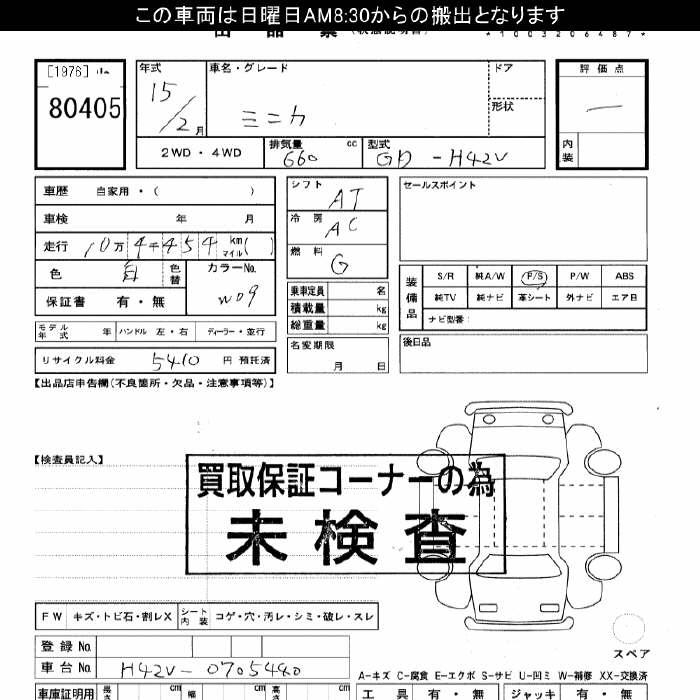 この車両は日曜日AM8:30からの搬出となります
出 品 票
*1003206487*
[1976] 山
80405
年式 15/2月 車名・グレード ミニカ ドア 形状
評価点 ー
内装
2WD・4WD 排気量 660 cc 型式 GD - H42V
車歴 自家用・( )
車検 年 月
走行 10万 4千454 km マイル( )
色 白 色替 カラーNo. W09
保証書 有・無
モデル年式 年 ハンドル 左・右 ディーラー・並行
リサイクル料金 5410 円 預託済
シフト AT
冷房 AC
燃料 G
乗車定員 名
積載量 kg
総重量 kg
名変期限 月 日
セールスポイント
装備品 S/R 純A/W P/S P/W ABS
純TV 純ナビ 革シート 外ナビ エア日
ナビ型番:
後日品
【出品店申告欄(不良箇所・欠品・注意事項等)】
【検査員記入】
買取保証コーナーの為
未検査
FW キズ・トビ石・割レX シート内装 コゲ・穴・汚レ・シミ・破レ・スレ
スペア
登録No.
車台No. H42V-0705440
A-キズ C-腐食 E-エクボ S-サビ U-凹ミ W-補修 XX-交換済
車庫証明用 長さ cm 幅 cm 高さ cm
工具 有・無 ジャッキ 有・無